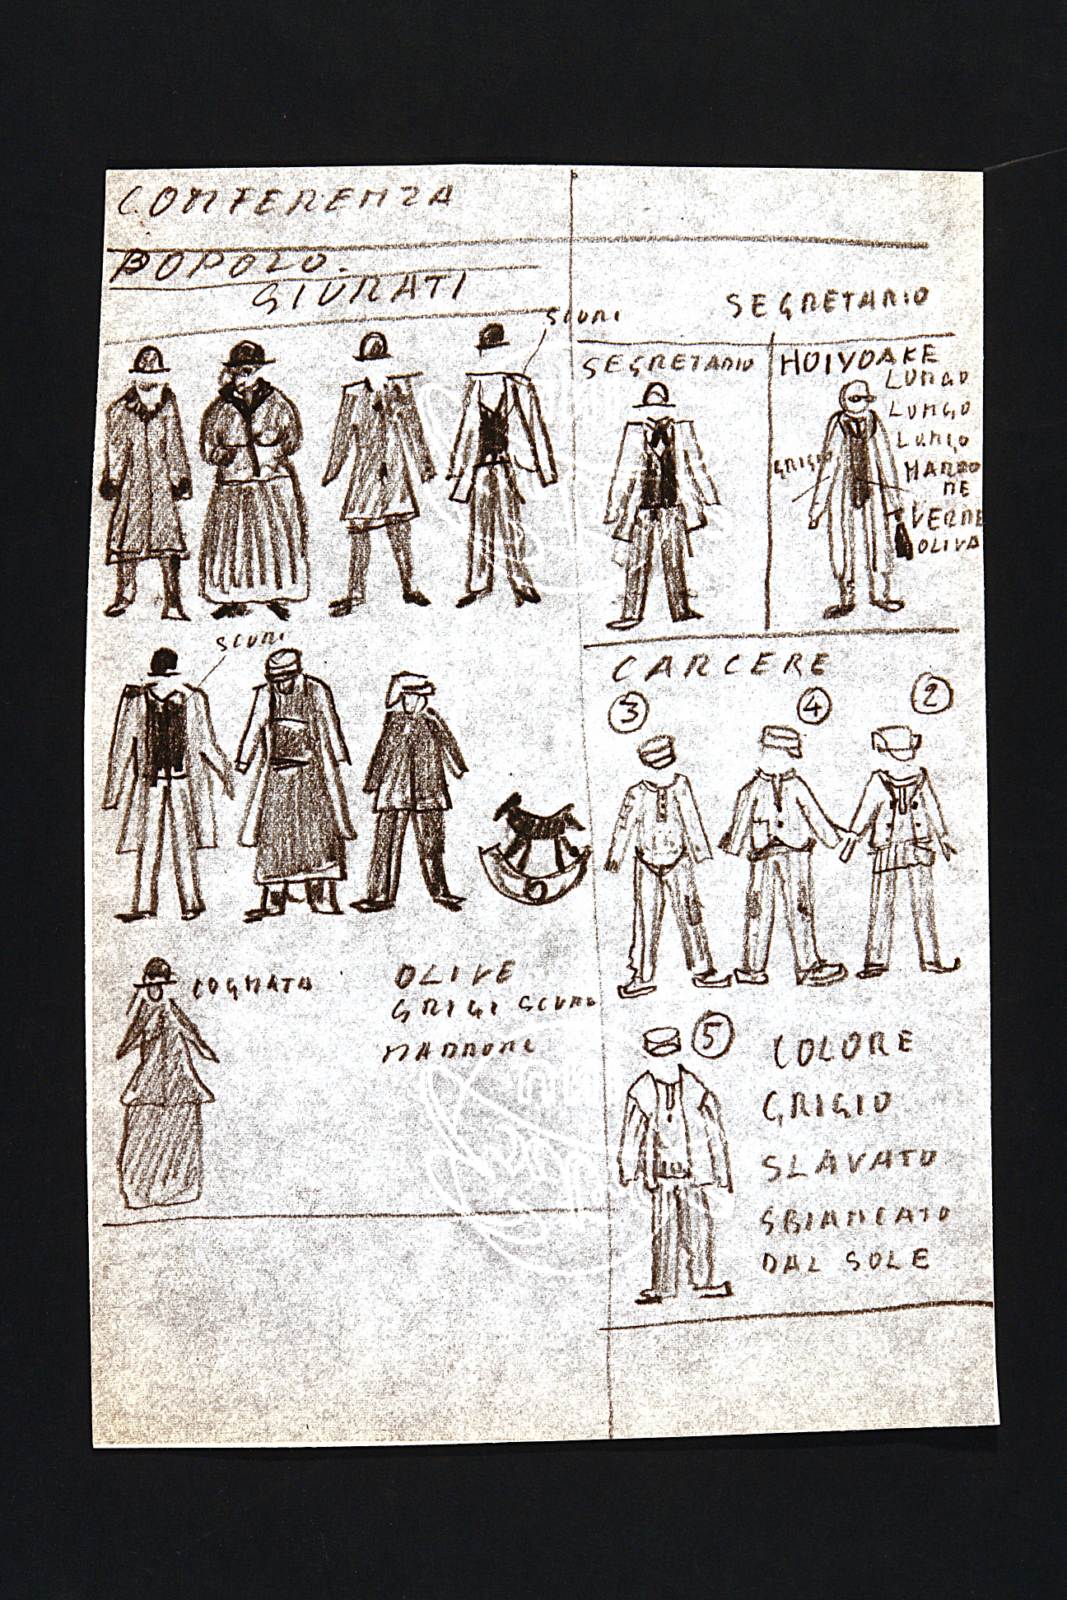 CONFERENZA
POPOLO.
GIURATI
SCURI
SCURI
COGNATA
OLIVE
GRIGI SCURO
MARRONE
SEGRETARIO
SEGRETARIO
HOLYOAKE
LUNGO
LUNGO
LUNGO
GRIGIO
MARRO
NE
VERDE
OLIVA
CARCERE
3
4
2
5
COLORE
GRIGIO
SLAVATO
SBIANCATO
DAL SOLE